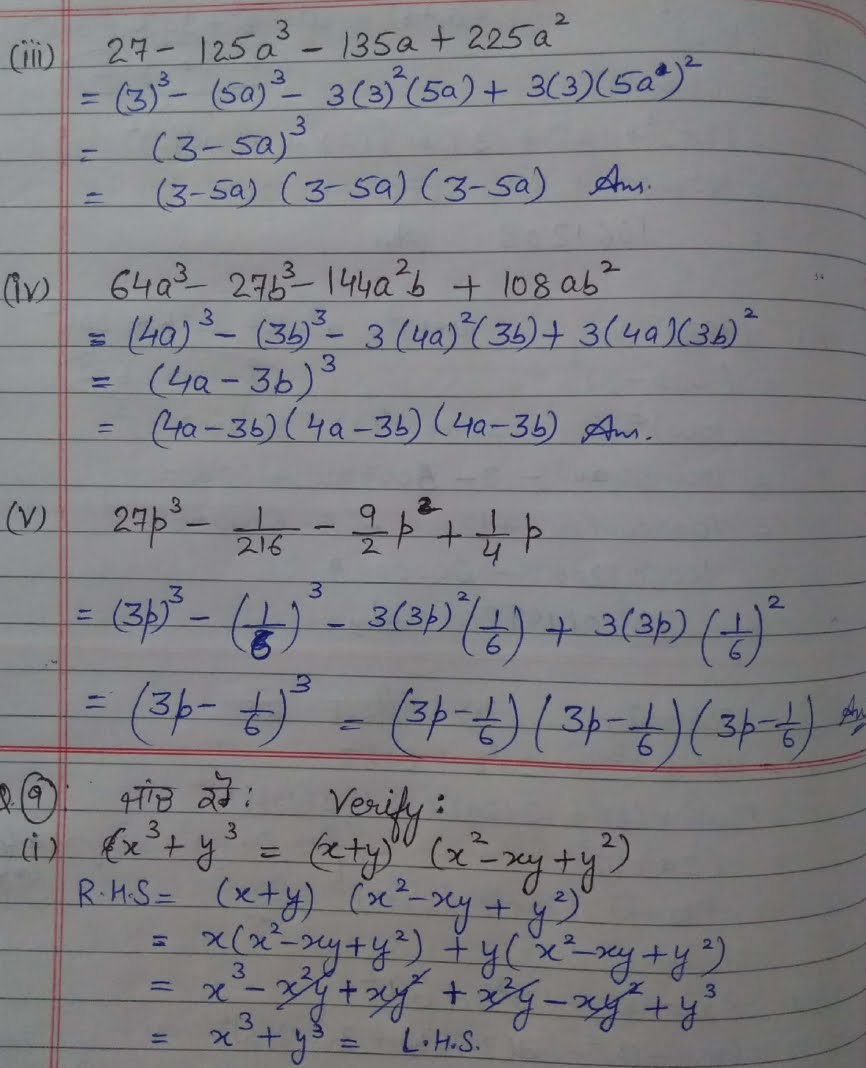 (iii) 27 - 125a³ - 135a + 225a²
= (3)³ - (5a)³ - 3(3)²(5a) + 3(3)(5a)²
= (3-5a)³
= (3-5a) (3-5a) (3-5a) Ans.
(iv) 64a³ - 27b³ - 144a²b + 108ab²
= (4a)³ - (3b)³ - 3(4a)²(3b) + 3(4a)(3b)²
= (4a-3b)³
= (4a-3b)(4a-3b)(4a-3b) Ans.
(v) 27p³ - 1/216 - 9/2 p² + 1/4 p
= (3p)³ - (1/6)³ - 3(3p)²(1/6) + 3(3p)(1/6)²
= (3p - 1/6)³ = (3p - 1/6)(3p - 1/6)(3p - 1/6) Ans
Q. 9 ਜਾਂਚ ਕਰੋ : Verify :
(i) x³ + y³ = (x+y) (x²-xy+y²)
R.H.S = (x+y) (x²-xy+y²)
= x(x²-xy+y²) + y(x²-xy+y²)
= x³ - x²y + xy² + x²y - xy² + y³
= x³ + y³ = L.H.S.